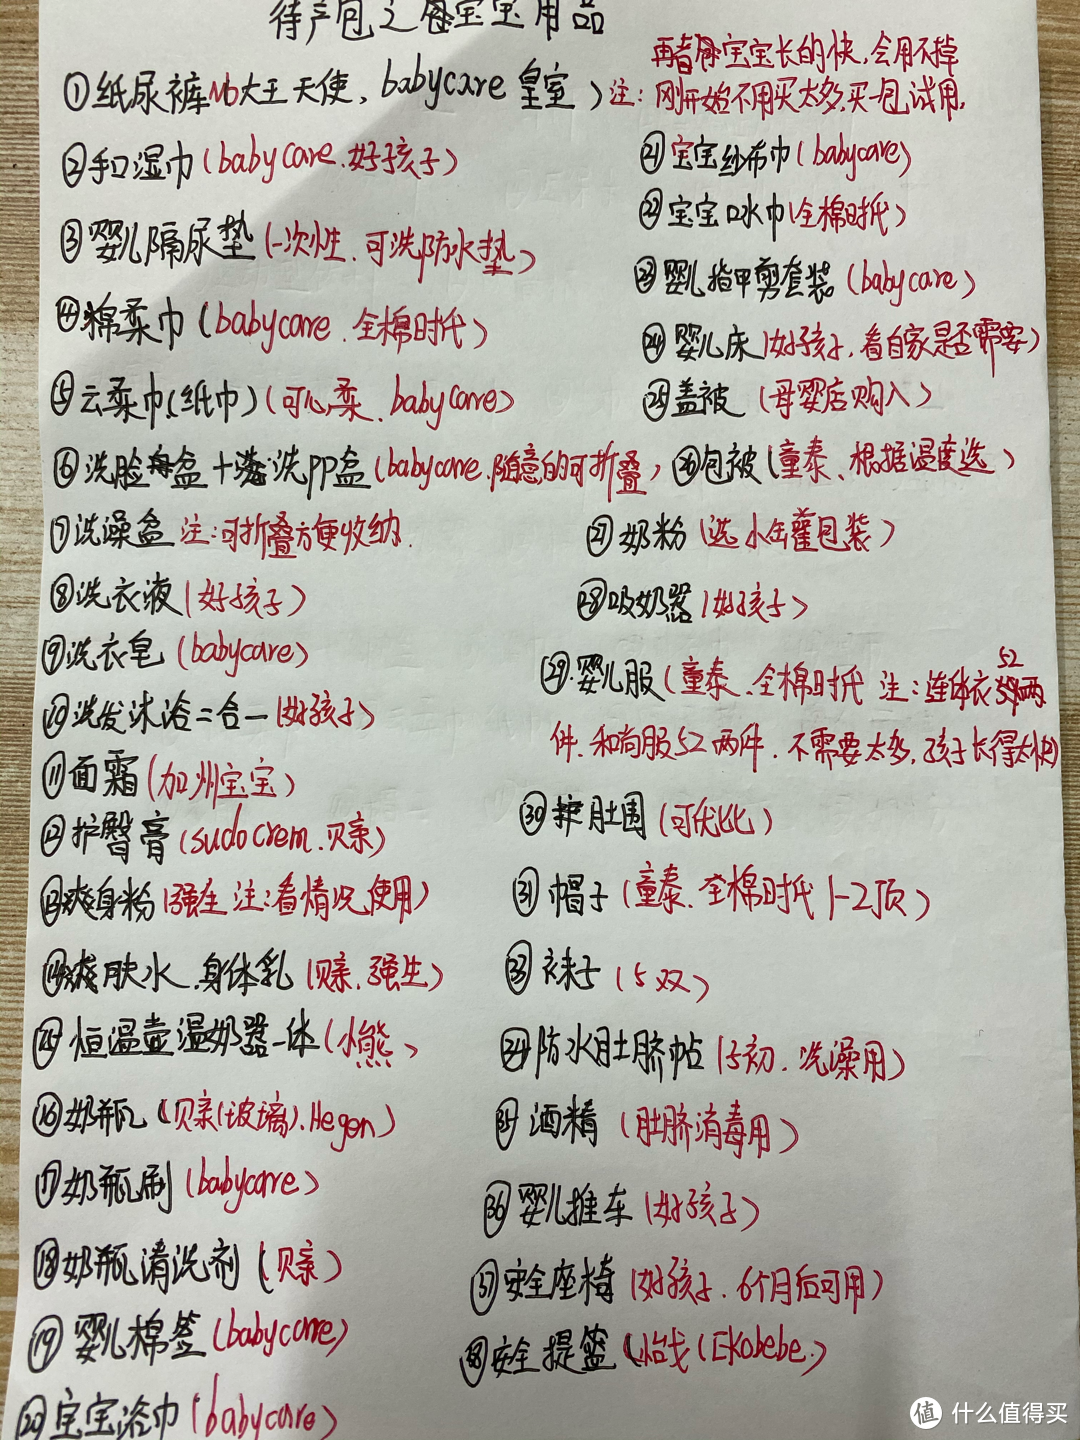 待产包之宝宝用品
①纸尿裤Nb大王天使、babycare 皇室)注:
再者宝宝长的快,会用不掉
刚开始不用买太多,买一包试用.
②手口湿巾(babycare.好孩子)
③婴儿隔尿垫(一次性、可洗防水垫)
④棉柔巾(babycare.全棉时代)
⑤云柔巾(纸巾)(可心柔、babycare)
⑥洗脸盆+洗PP盆(babycare.随意的可折叠)
⑦洗澡盆 注:可折叠方便收纳.
⑧洗衣液(好孩子)
⑨洗衣皂(babycare)
⑩洗发沐浴二合一(好孩子)
⑪面霜(加州宝宝)
⑫护臀膏(sudocrem.贝亲)
⑬爽身粉(强生 注:看情况使用)
⑭爽肤水.身体乳(贝亲.强生)
㉕恒温壶温奶器一体(小熊)
⑯奶瓶(贝亲(玻璃).Hegen)
⑰奶瓶刷(babycare)
⑱奶瓶清洗剂(贝亲)
⑲婴儿棉签(babycare)
⑳宝宝浴巾(babycare)
㉑宝宝纱布巾(babycare)
㉒宝宝口水巾(全棉时代)
㉓婴儿指甲剪套装(babycare)
㉔婴儿床(好孩子,看自家是否需要)
㉕盖被(母婴店购入)
㉖包被(童泰、根据温度选)
㉗奶粉(选小罐包装)
㉘吸奶器(好孩子)
㉙.婴儿服(童泰、全棉时代 注:连体衣52两
件.和尚服52两件.不需要太多,孩子长得太快)
㉚护肚围(可优比)
㉛帽子(童泰.全棉时代 1-2顶)
㉝袜子(5双)
㉞防水肚脐帖(子初.洗澡用)
㉟酒精(肚脐消毒用)
㊱婴儿推车(好孩子)
㊲安全座椅(好孩子.6个月后可用)
㊳安全提篮(怡戈(Ekobebe.)
值 什么值得买